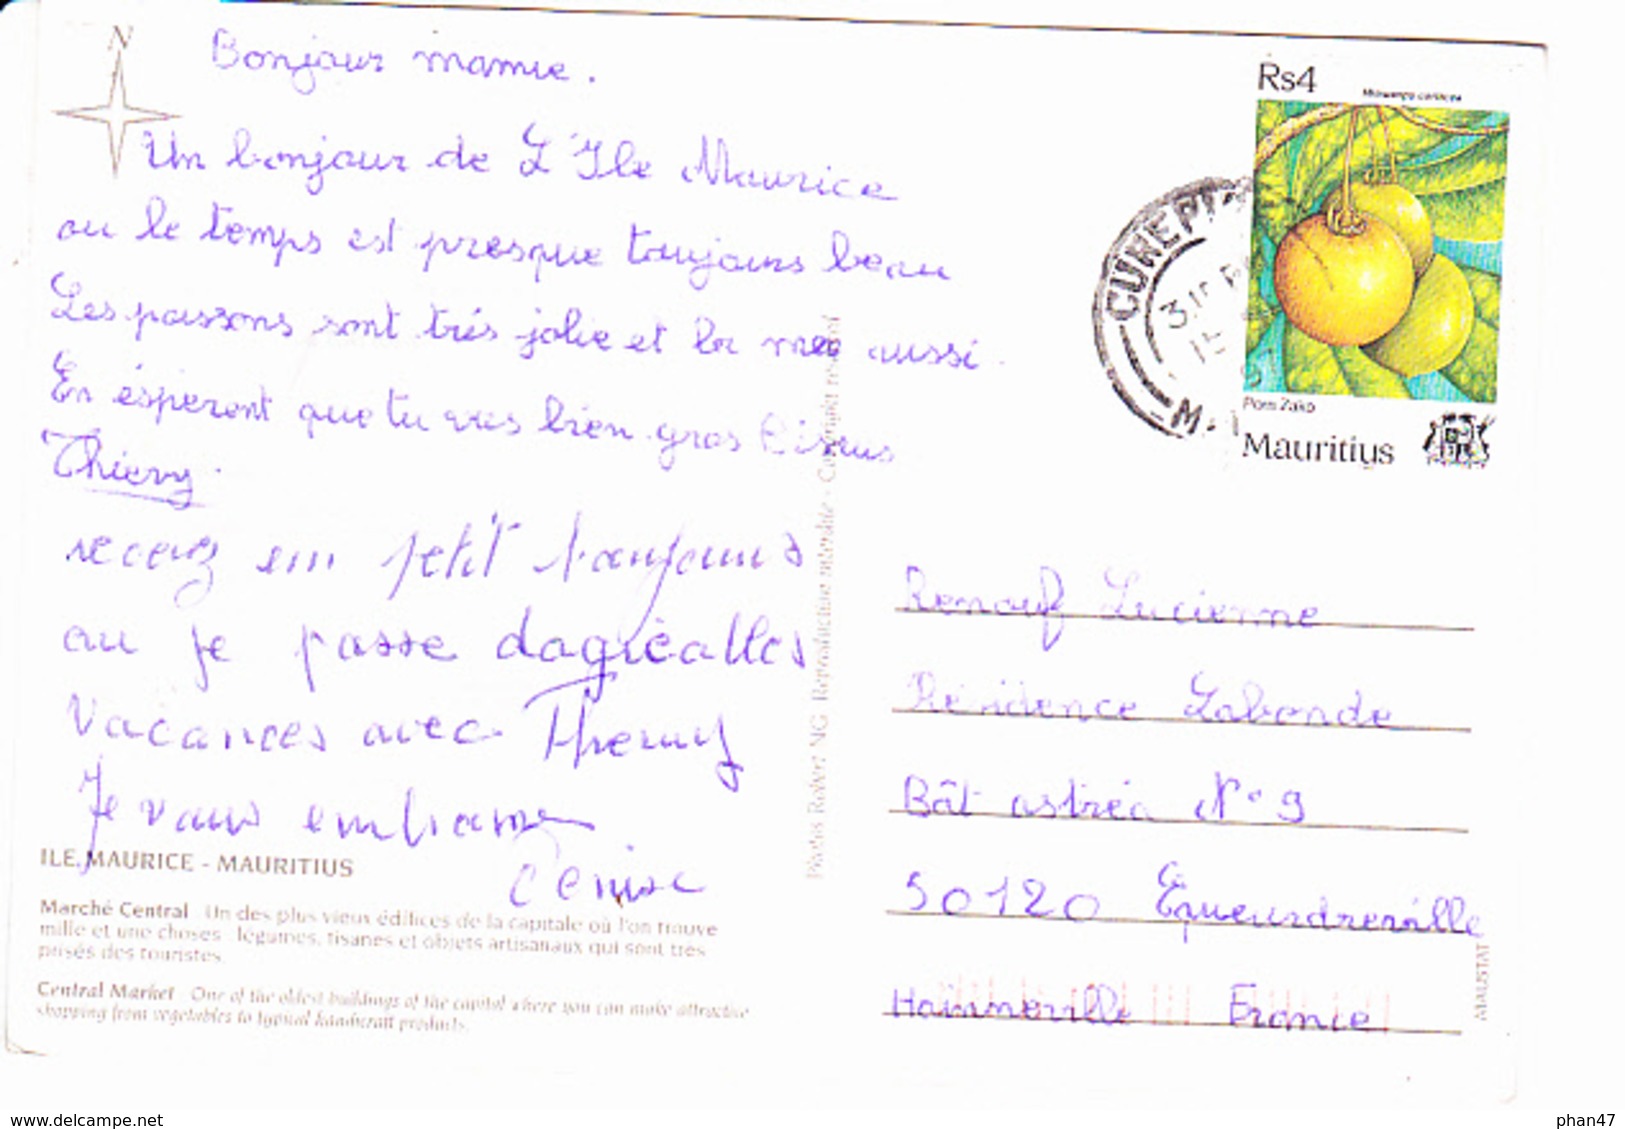 N
Bonjour mamie.
Un bonjour de L'Ile Maurice
ou le temps est presque toujours beau
Les poissons sont très jolie et la mer aussi.
En ésperent que tu vas bien gros bisous
Thierry.
recevez un petit bonjours
ou je passe dagréables
vacances avec Thierry
Je vous embrasse
Denise
ILE MAURICE - MAURITIUS
Marché Central Un des plus vieux édifices de la capitale où l'on trouve
mille et une choses : légumes, tisanes et objets artisanaux qui sont très
prisés des touristes.
Central Market One of the oldest buildings of the capital where you can make attractive
shopping from vegetables to typical handicraft products.
Photos Robert NG Reproduction interdite - Copyright reserved
Rs4
CUREPI
M
Pom Zako
Mauritius
Renouf Lucienne
Résidence Labonde
Bât astréa N° 9
50120 Équeurdreville
Hainneville France
MAUSTAT
www.delcampe.net
phan47